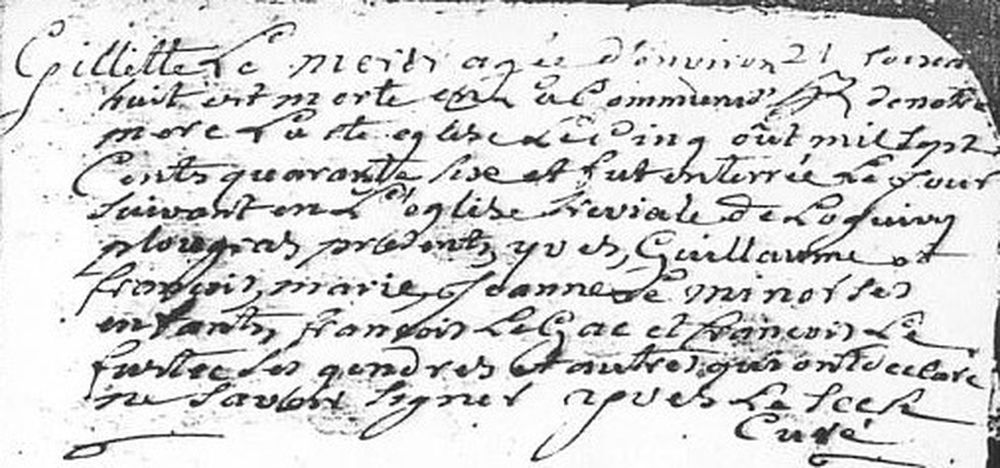 Gillette Le merdy agée d'environ soixa
huit est morte en La Communion de notre
mere La Ste eglise Le Cinq oût mil sept
Cents quarante six et fut enterrée Le jour
suivant en L'eglise treviale de Loguivy
plougras presents yves, Guillaume et
françois, marie, Jeanne Le minor ses
enfants, françois Le Gac et françois Le
fustec ses gendres et autres qui ont declaré
ne savoir signer yves Le
Curé